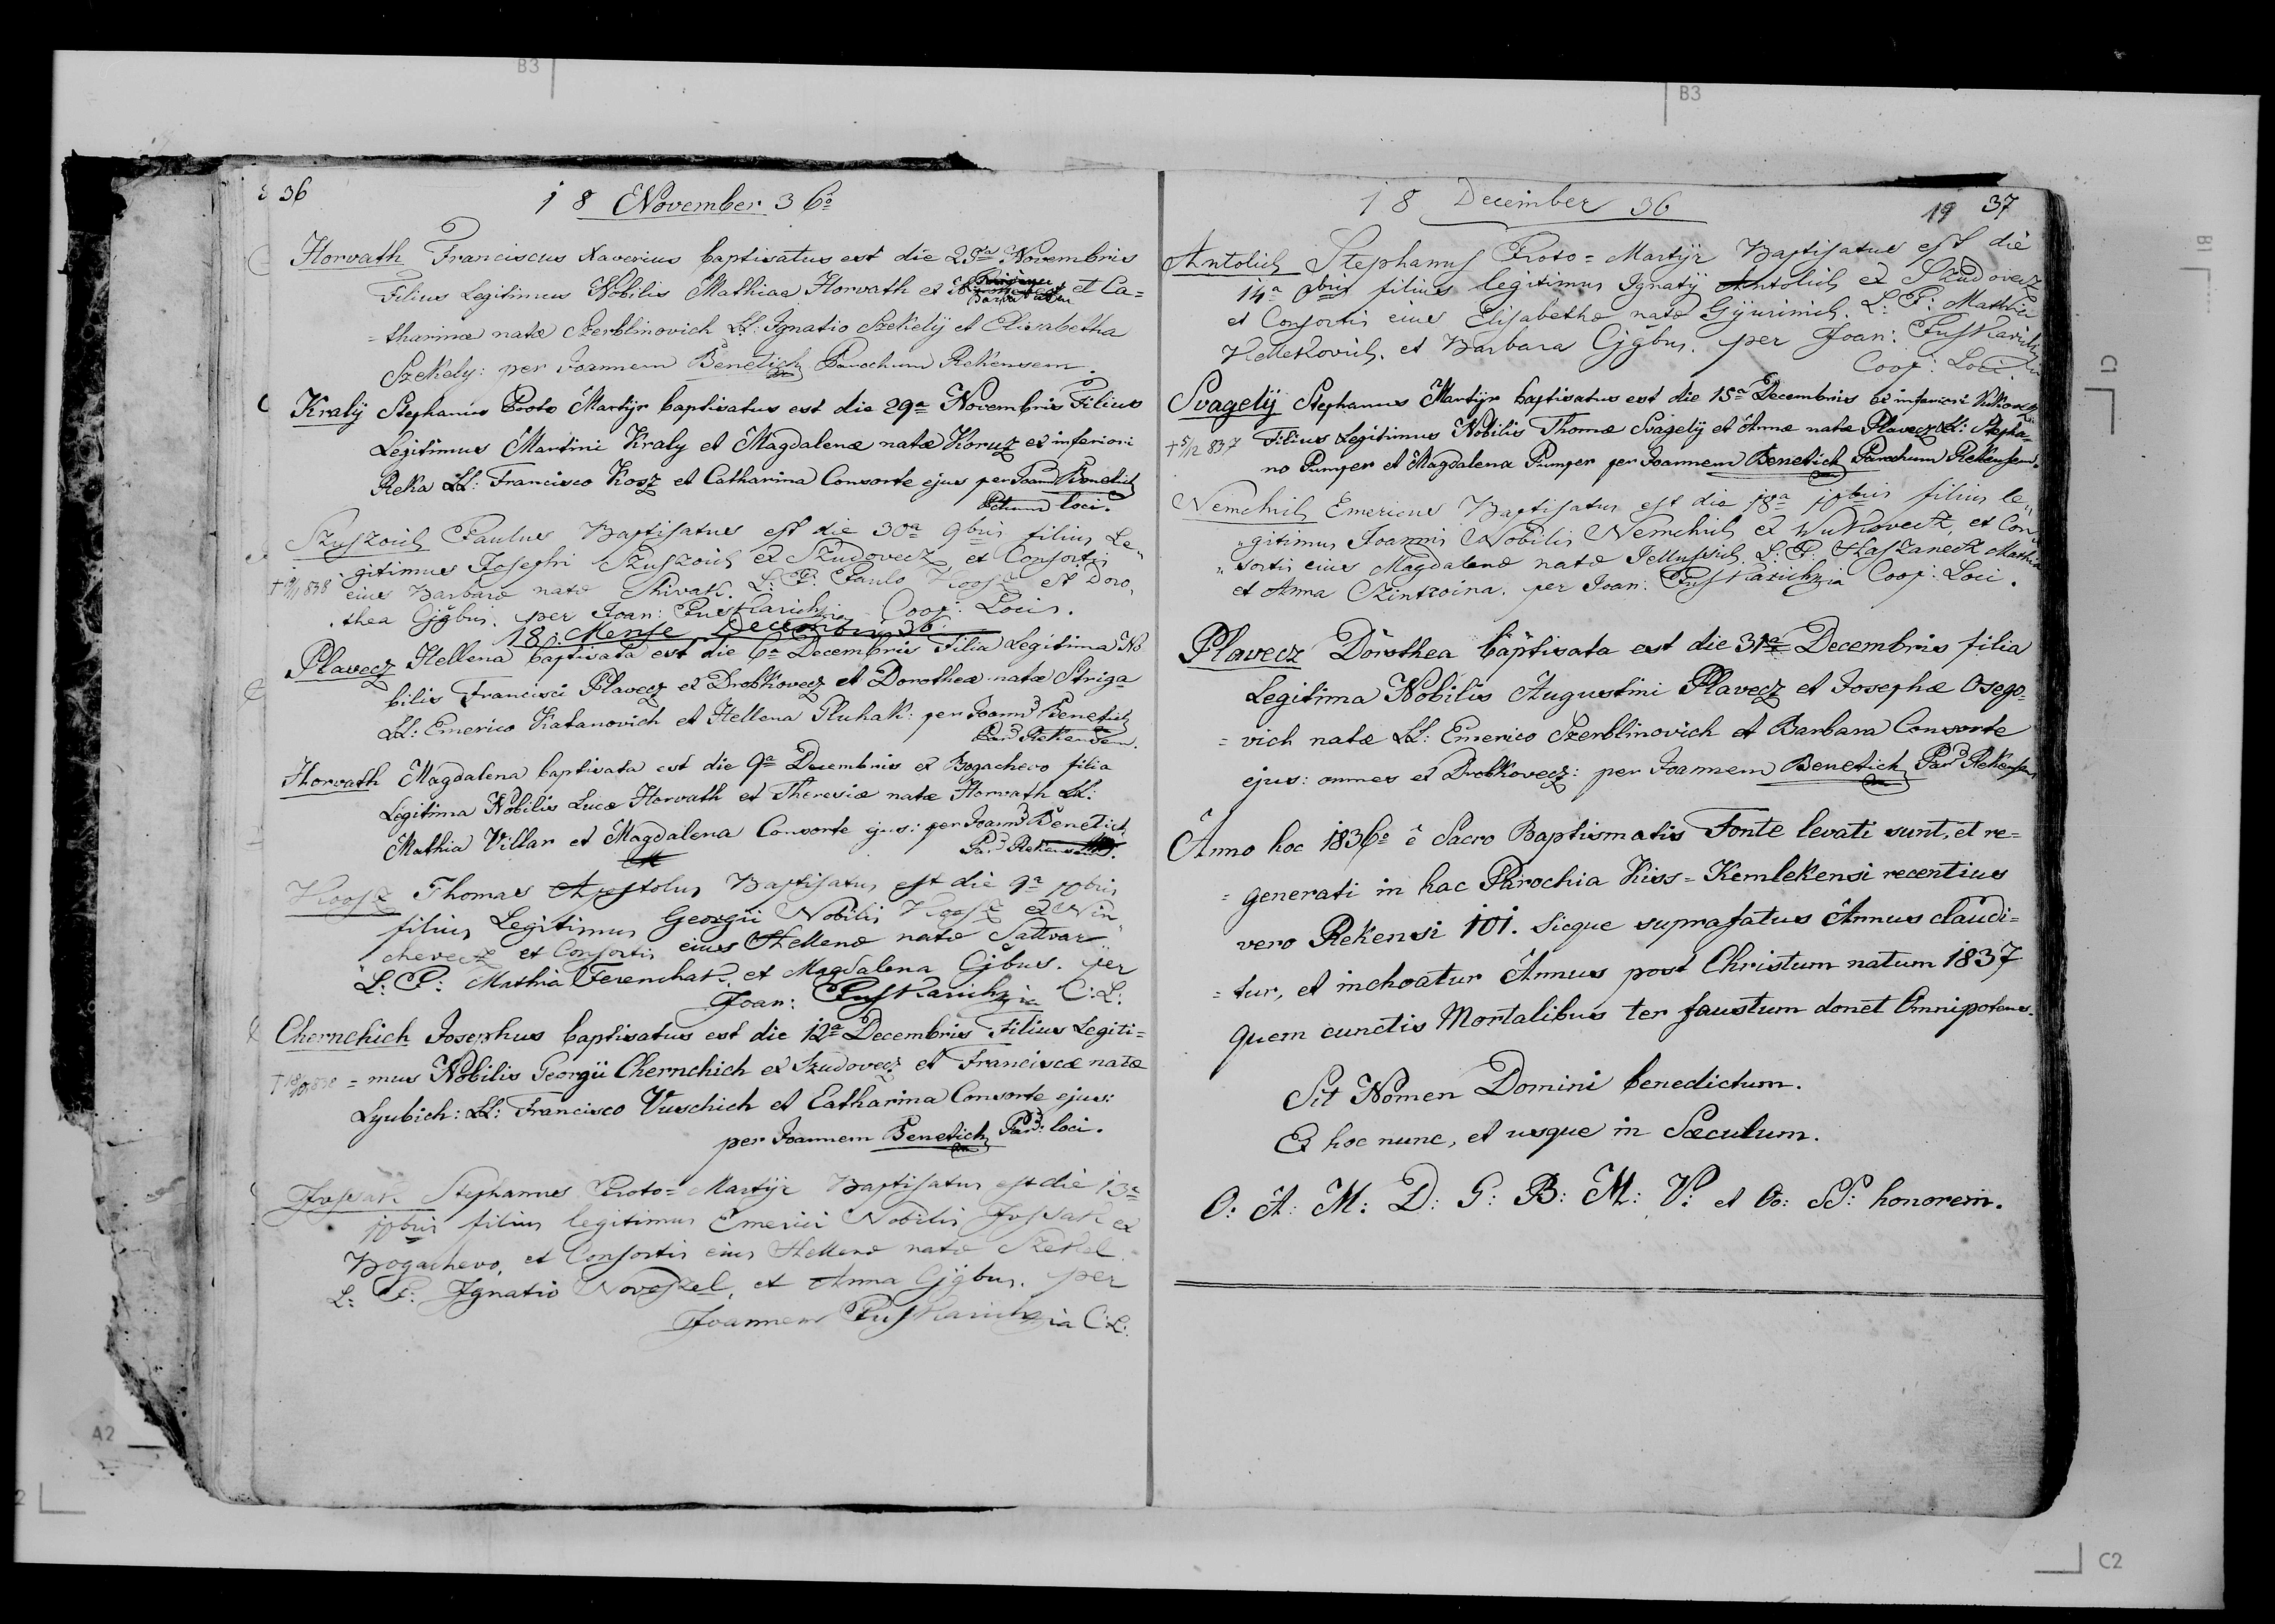 36
18 November 36o
Horvath Franciscus Xaverius baptisatus est die 25ta Novembris
Filius Legitimus Nobilis Mathiae Horvath ex et Ca=
=tharinæ natæ Szerblinovich LL: Ignatio Szekelÿ et Elisabetha
Szekely: per Joannem Benetich Parochum Rekensem.
Kralÿ Stephanus Proto Martÿr baptisatus est die 29a Novembris Filius
Legitimus Martini Kraly et Magdalenæ natæ Koruz ex inferiori
Reka LL: Francisco Kosz et Catharina Consorte ejus per Joan Benetich
loci.
Paulus Baptisatus est die 30a 9bris filius Le„
gitimus Josephi ex Szudovecz et Consortis
† 838 eius Barbaræ natæ Shivak. L: P: Paulo Koosz et Doro,
thea Gjgbus. per Joan: Pushkarich Coop: Loci.
18. Mense Decembri 36.
Plavecz Hellena baptisata est die 6a Decembris Filia Legitima No
bilis Francisci Plavecz ex Drobkovecz et Dorotheæ natæ Striga
LL: Emerico Katanovich et Hellena Gluhak: per Joann Benetich
Par Rekensem.
Horvath Magdalena baptisata est die 9a Decembris ex Bogachevo filia
Legitima Nobilis Lucæ Horvath et Theresiæ natæ Horvath LL:
Mathia Villar et Magdalena Consorte ejus: per Joann Benetich
Par Rekensem.
Koosz Thomas Apostolus Baptisatus est die 9a 10bris
filius Legitimus Georgii Nobilis Koosz ex Vin„
chevecz et Consortis eius Hellenæ natæ Sattvar
L: P: Mathia Ferenchak, et Magdalena Gjbus. per
Joan: Pushkarich C: L:
Chernchich Josephus baptisatus est die 12a Decembris Filius Legiti=
=mus Nobilis Georgii Chernchich ex Szudovecz et Franciscæ natæ
Lyubich: LL: Francisco Vuschich et Catharina Consorte ejus:
per Joannem Benetich Par: loci.
Jussak Stephanus Proto=Martÿr Baptisatus est die 13a
10bris filius legitimus Emerici Nobilis Jussak ex
Bogachevo, et Consortis eius Hellenæ natæ Szekel.
L: P: Ignatio Novoszel, et Anna Gjgbus. per
Joannem Pushkarich C: L:
18 December 36
19 37
Antolich Stephanus Proto=Martÿr Baptisatus est die
14a bris filius legitimus Ignatÿ Antolich ex Szudovecz
et Consortis eius Elisabethæ natæ Gÿurinich. L: P: Mathia
et Barbara Gjgbus. per Joan: Pushkarich
Coop: Loci.
Svagelÿ Stephanus Martÿr baptisatus est die 15a Decembris ex inferiori
† 5/12 837 Filius Legitimus Nobilis Thomæ Svagelÿ et Annæ natæ Plavecz LL: Stepha=
no Pumper et Magdalena Pumper per Joannem Benetich Parochum Rekensem.
Nemchich Emericus Baptisatus est die 18a 10bris filius le„
„gitimus Joannis Nobilis Nemchich ex Vukovecz, et Con„
„sortis eius Magdalenæ natæ Jellussich. L: P. Mathia
et Anna per Joan: Pushkarich Coop: Loci.
Plavecz Dorothea baptisata est die 31a Decembris filia
Legitima Nobilis Augustini Plavecz et Josephæ Osego=
=vich natæ LL: Emerico Szerblinovich et Barbara Consorte
ejus: omnes ex Drobkovecz: per Joannem Benetich Par Rekensem
Anno hoc 1836o è Sacro Baptismatis Fonte levati sunt, et re=
=generati in hac Parochia Kiss=Kemlekensi recentius
vero Rekensi 101. Sicque suprafatus Annus claudi=
=tur, et inchoatur Annus post Christum natum 1837
quem cunctis Mortalibus ter faustum donet Omnipotens.
Sit Nomen Domini benedictum.
Ex hoc nunc, et usque in Sæculum.
O: A: M: D: G: B: M: V: et Oo: SS: honorem.
B3
B3
A2
B1
C1
C2